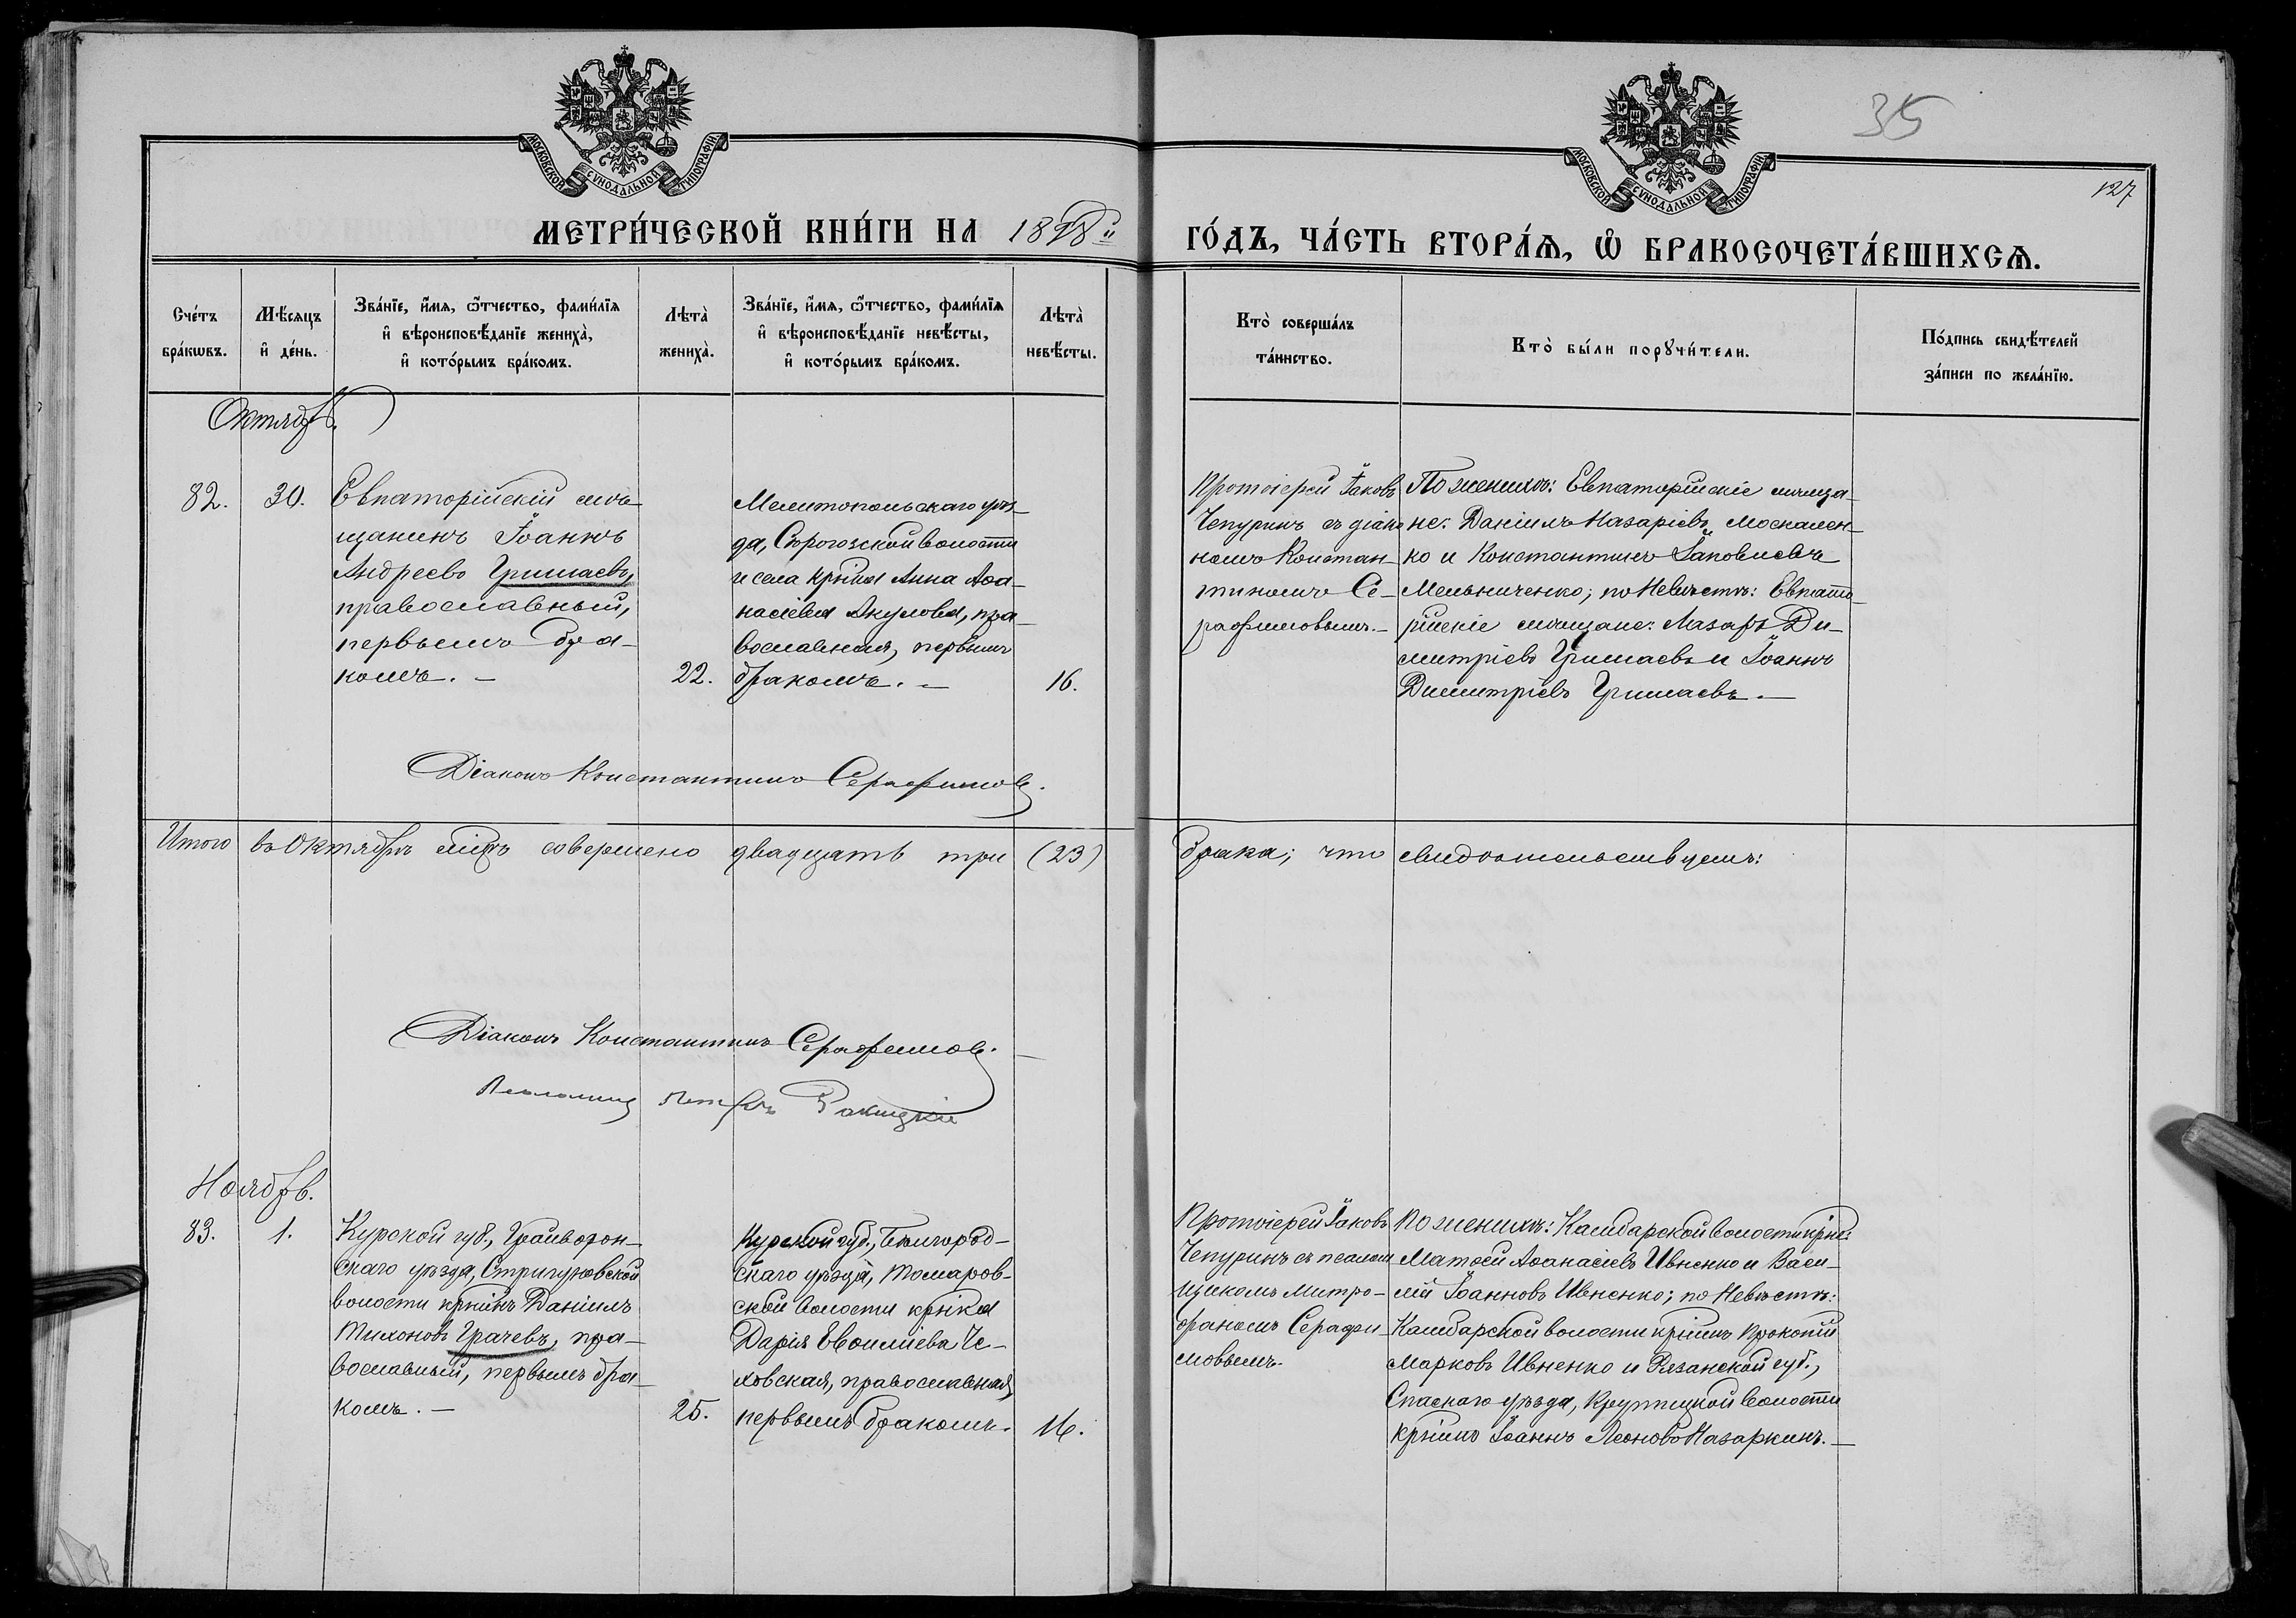 35
127
МОСКОВСКОЙ СУНОДАЛЬНОЙ ТИПОГРАФІИ
МОСКОВСКОЙ СУНОДАЛЬНОЙ ТИПОГРАФІИ
МЕТРИ́ЧЕСКОЙ КНИ́ГИ НА 1898й ГО́ДЪ, ЧА́СТЬ ВТОРА́Ѧ, Ѽ БРАКОСОЧЕТА́ВШИХСѦ.
Сче́тъ бра́кѡвъ.
Мѣ́сяцъ и҆ де́нь.
Зва́нїе, и҆́мя, ѻ҆́тчество, фами́лїя
и҆ вѣроисповѣ́данїе жениха̀,
и҆ кото́рымъ бра́комъ.
Лѣта̀ жениха̀.
Зва́нїе, и҆́мя, ѻ҆́тчество, фами́лїя
и҆ вѣроисповѣ́данїе невѣ́сты,
и҆ кото́рымъ бра́комъ.
Лѣта̀ невѣ́сты.
Кто̀ соверша́лъ та́инство.
Кто̀ бы́ли порꙋчи́тели.
По́дпись свидѣ́телей за́писи по жела́нїю.
Октябрь.
82.
30.
Евпаторійскій мѣ-
щанинъ Іоаннъ
Андреевъ Гришаевъ,
православный,
первымъ бра-
комъ. —
22.
Мелитопольскаго уѣз-
да, Сѣрогозской волости
и села кр҃нка Анна Аѳа-
насіева Акулова, пра-
вославная, первымъ
бракомъ. —
16.
Протоіерей Іаковъ
Чепуринъ съ діако-
номъ Констан-
тиномъ Се-
рафимовымъ. —
По женихѣ: Евпаторійскіе мѣща-
не: Даніилъ Назаріевъ Москален-
ко и Константинъ Іаковлевъ
Мельниченко; по невѣстѣ: Евпато-
рійскіе мѣщане: Лазарь Ди-
митріевъ Гришаевъ и Іоаннъ
Димитріевъ Гришаевъ. —
Діаконъ Константинъ Серафимовъ.
Итого въ Октябрѣ мцѣ совершено двадцать три (23) брака; что свидѣтельствуемъ:
Діаконъ Константинъ Серафимовъ. —
Псаломщ Петръ Ракицкій
Ноябрь.
83.
1.
Курской губ., Грайворон-
скаго уѣзда, Стригуновской
волости кр҃нинъ Даніилъ
Тихоновъ Грачевъ, пра-
вославный, первымъ бра-
комъ. —
25.
Курской губ., Бѣлгород-
скаго уѣзда, Томаров-
ской волости кр҃нка
Дарія Евѳиміева Че-
ховская, православная,
первымъ бракомъ.
16.
Протоіерей Іаковъ
Чепуринъ съ псалом
щикомъ Митро-
фаномъ Серафи-
мовымъ.
По женихѣ: Камбарской волости кр҃не:
Матѳей Аѳанасіевъ Ивненко и Васи-
лій Іоанновъ Ивненко; по невѣстѣ:
Камбарской волости кр҃нинъ Прокопій
Марковъ Ивненко и Рязанской губ.,
Спаскаго уѣзда, волости
кр҃нинъ Іоаннъ Леоновъ Назаркинъ. —